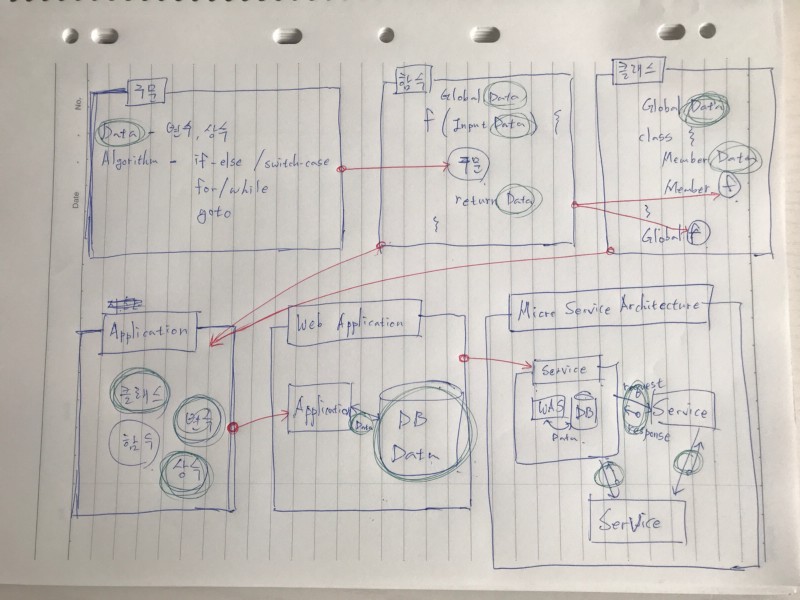 No.
Date
구문
Data - 변수, 상수
Algorithm - if-else / switch-case
for/while
goto
함수
Global Data
f (Input Data) {
구문
return Data
}
클래스
Global Data
class {
Member Data
Member f
}
Global f
Application
클래스
변수
함수
상수
Web Application
Application
Data
DB
Data
Micro Service Architecture
Service
WAS
DB
Data
request
response
Service
Service